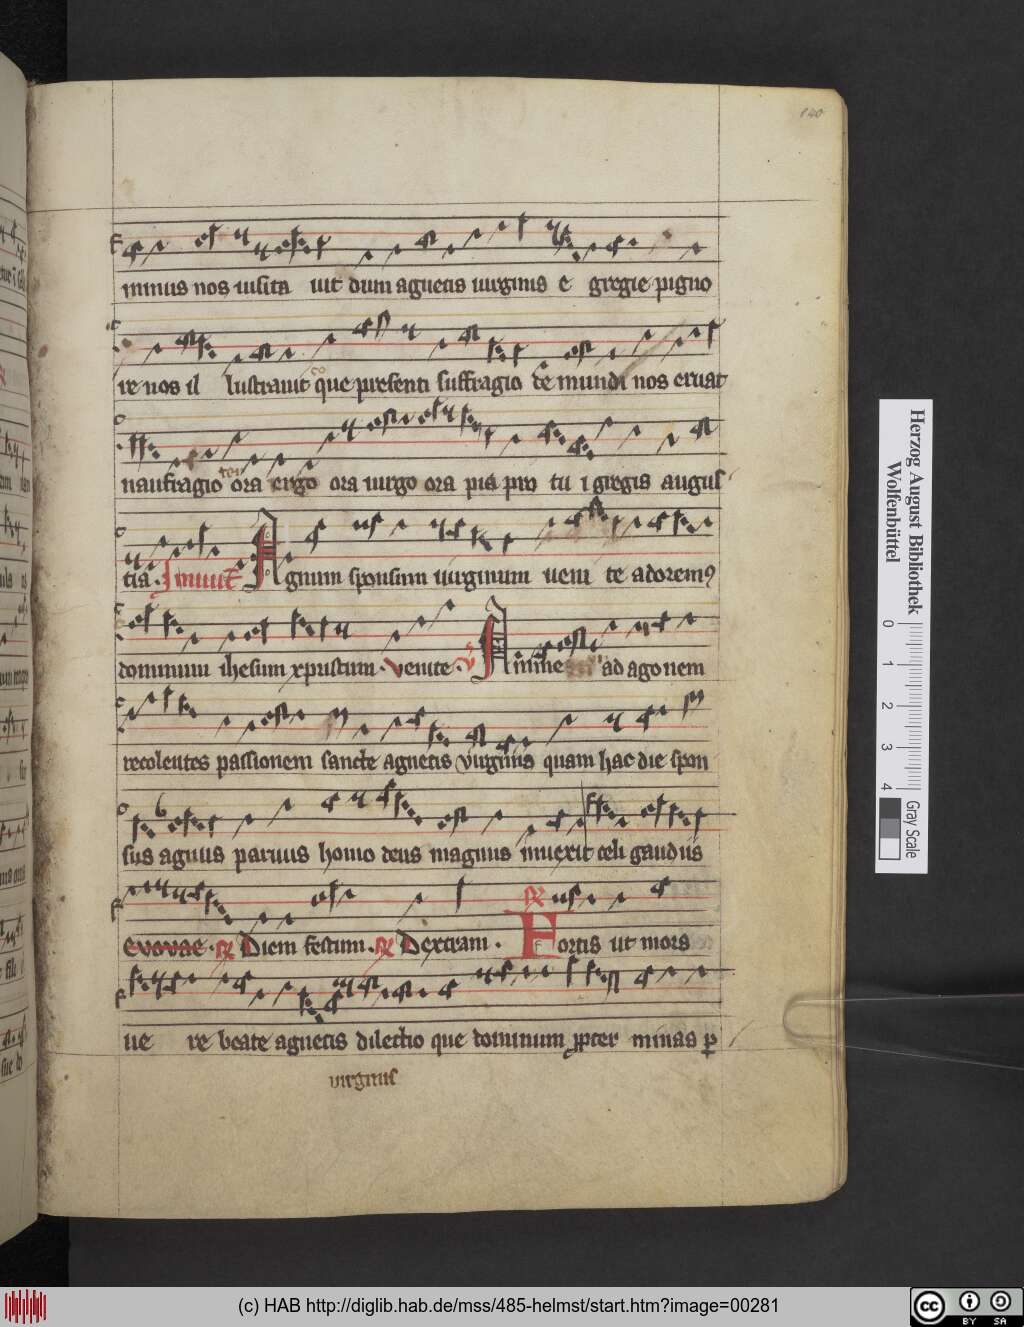 140
minus nos uisita uit dum agnetis uirginis e gregie pigno
re nos il lustrauit que presenti suffragio de mundi nos eruat
naufragio ora ergo ora uirgo ora pia pro tu i gregis augus
tia. Inuit Agnum sponsum uirginum ueni te adoremꝰ
dominum ihesum xpustum. Venite. V Anime ad agonem
recolentes passionem sancte agnetis virginis quam hac die spon
sus agnus paruus homo deus magnus inuexit celi gaudiis
evovae. R Diem festum. R Dextram. Fortis ut mors
ue re beate agnetis dilectio que dominum ꝓpter minas ꝑ
virginis
Herzog August Bibliothek
Wolfenbüttel
0 1 2 3 4
Gray Scale
(c) HAB http://diglib.hab.de/mss/485-helmst/start.htm?image=00281
cc BY SA